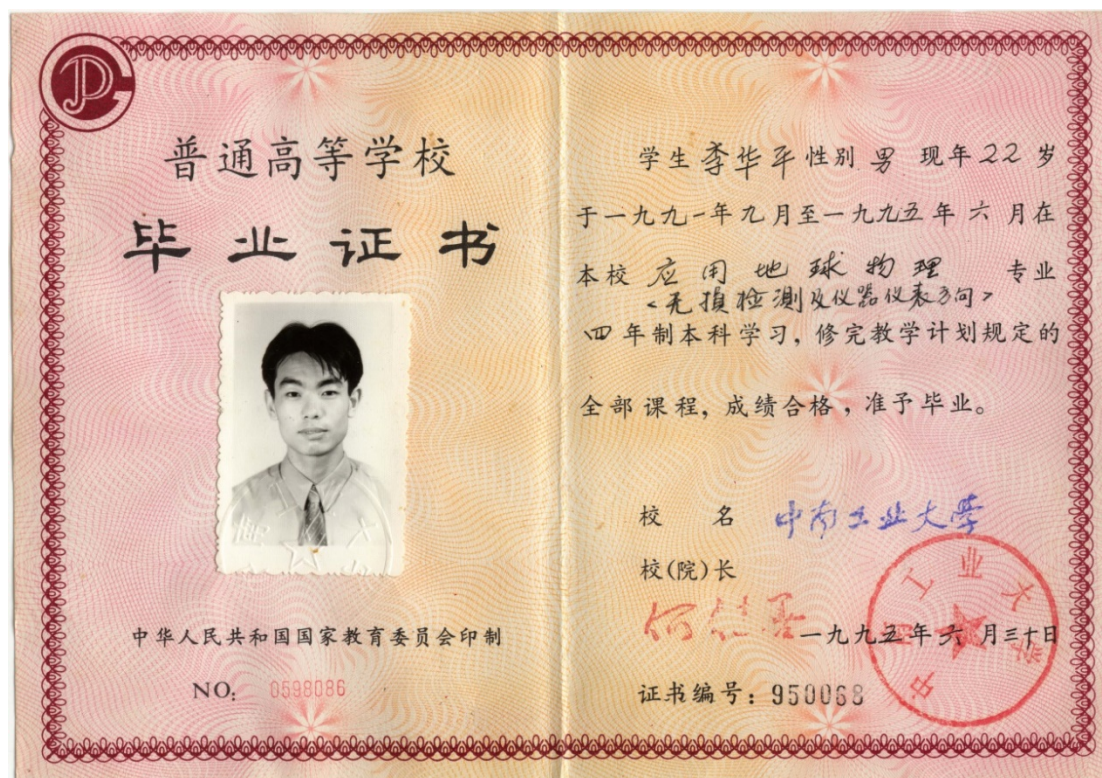 普通高等学校
毕业证书
中华人民共和国国家教育委员会印制
NO: 0598086
学生李华平性别 男 现年22岁
于一九九一年九月至一九九五年六月在
本校 应用地球物理 专业
<无損检测及仪器仪表方向>
四年制本科学习, 修完教学计划规定的
全部课程, 成绩合格, 准予毕业。
校 名 中南工业大学
校(院)长
一九九五年六月三十日
证书编号: 950068
中南工业大学